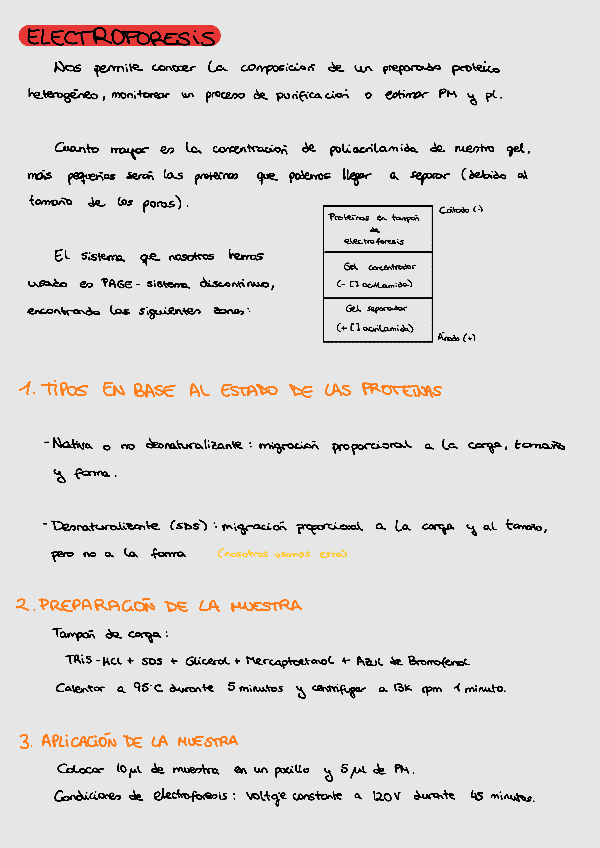 ELECTROFORESIS
Nos permite conocer la composición de un preparado proteico
heterogéneo, monitorear un proceso de purificación o estimar PM y pI.
Cuanto mayor es la concentración de poliacrilamida de nuestro gel,
más pequeñas serán las proteínas que podemos llegar a separar (debido al
tamaño de los poros).
El sistema que nosotros hemos
usado es PAGE - sistema discontinuo,
encontrando las siguientes zonas:
Proteínas en tampón
de
electroforesis
Cátodo (-)
Gel concentrador
(- [] acrilamida)
Gel separador
(+ [] acrilamida)
Ánodo (+)
1. TIPOS EN BASE AL ESTADO DE LAS PROTEÍNAS
- Nativa o no desnaturalizante: migración proporcional a la carga, tamaño
y forma.
- Desnaturalizante (SDS): migración proporcional a la carga y al tamaño,
pero no a la forma (nosotros usamos esta)
2. PREPARACIÓN DE LA MUESTRA
Tampón de carga:
TRIS-HCl + SDS + Glicerol + Mercaptoetanol + Azul de Bromofenol
Calentar a 95°C durante 5 minutos y centrifugar a 13K rpm 1 minuto.
3. APLICACIÓN DE LA MUESTRA
Colocar 10 µl de muestra en un pocillo y 5 µl de PM.
Condiciones de electroforesis: voltaje constante a 120V durante 45 minutos.